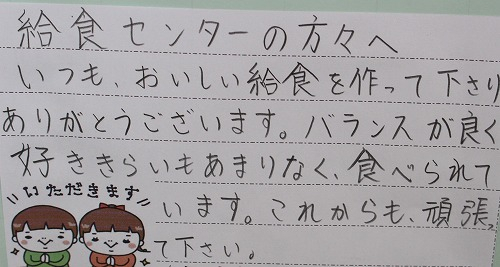 給食センターの方々へ
いつも、おいしい給食を作って下さり
ありがとうございます。バランスが良く
好ききらいもあまりなく、食べられて
います。これからも、頑張っ
て下さい。
いただきます